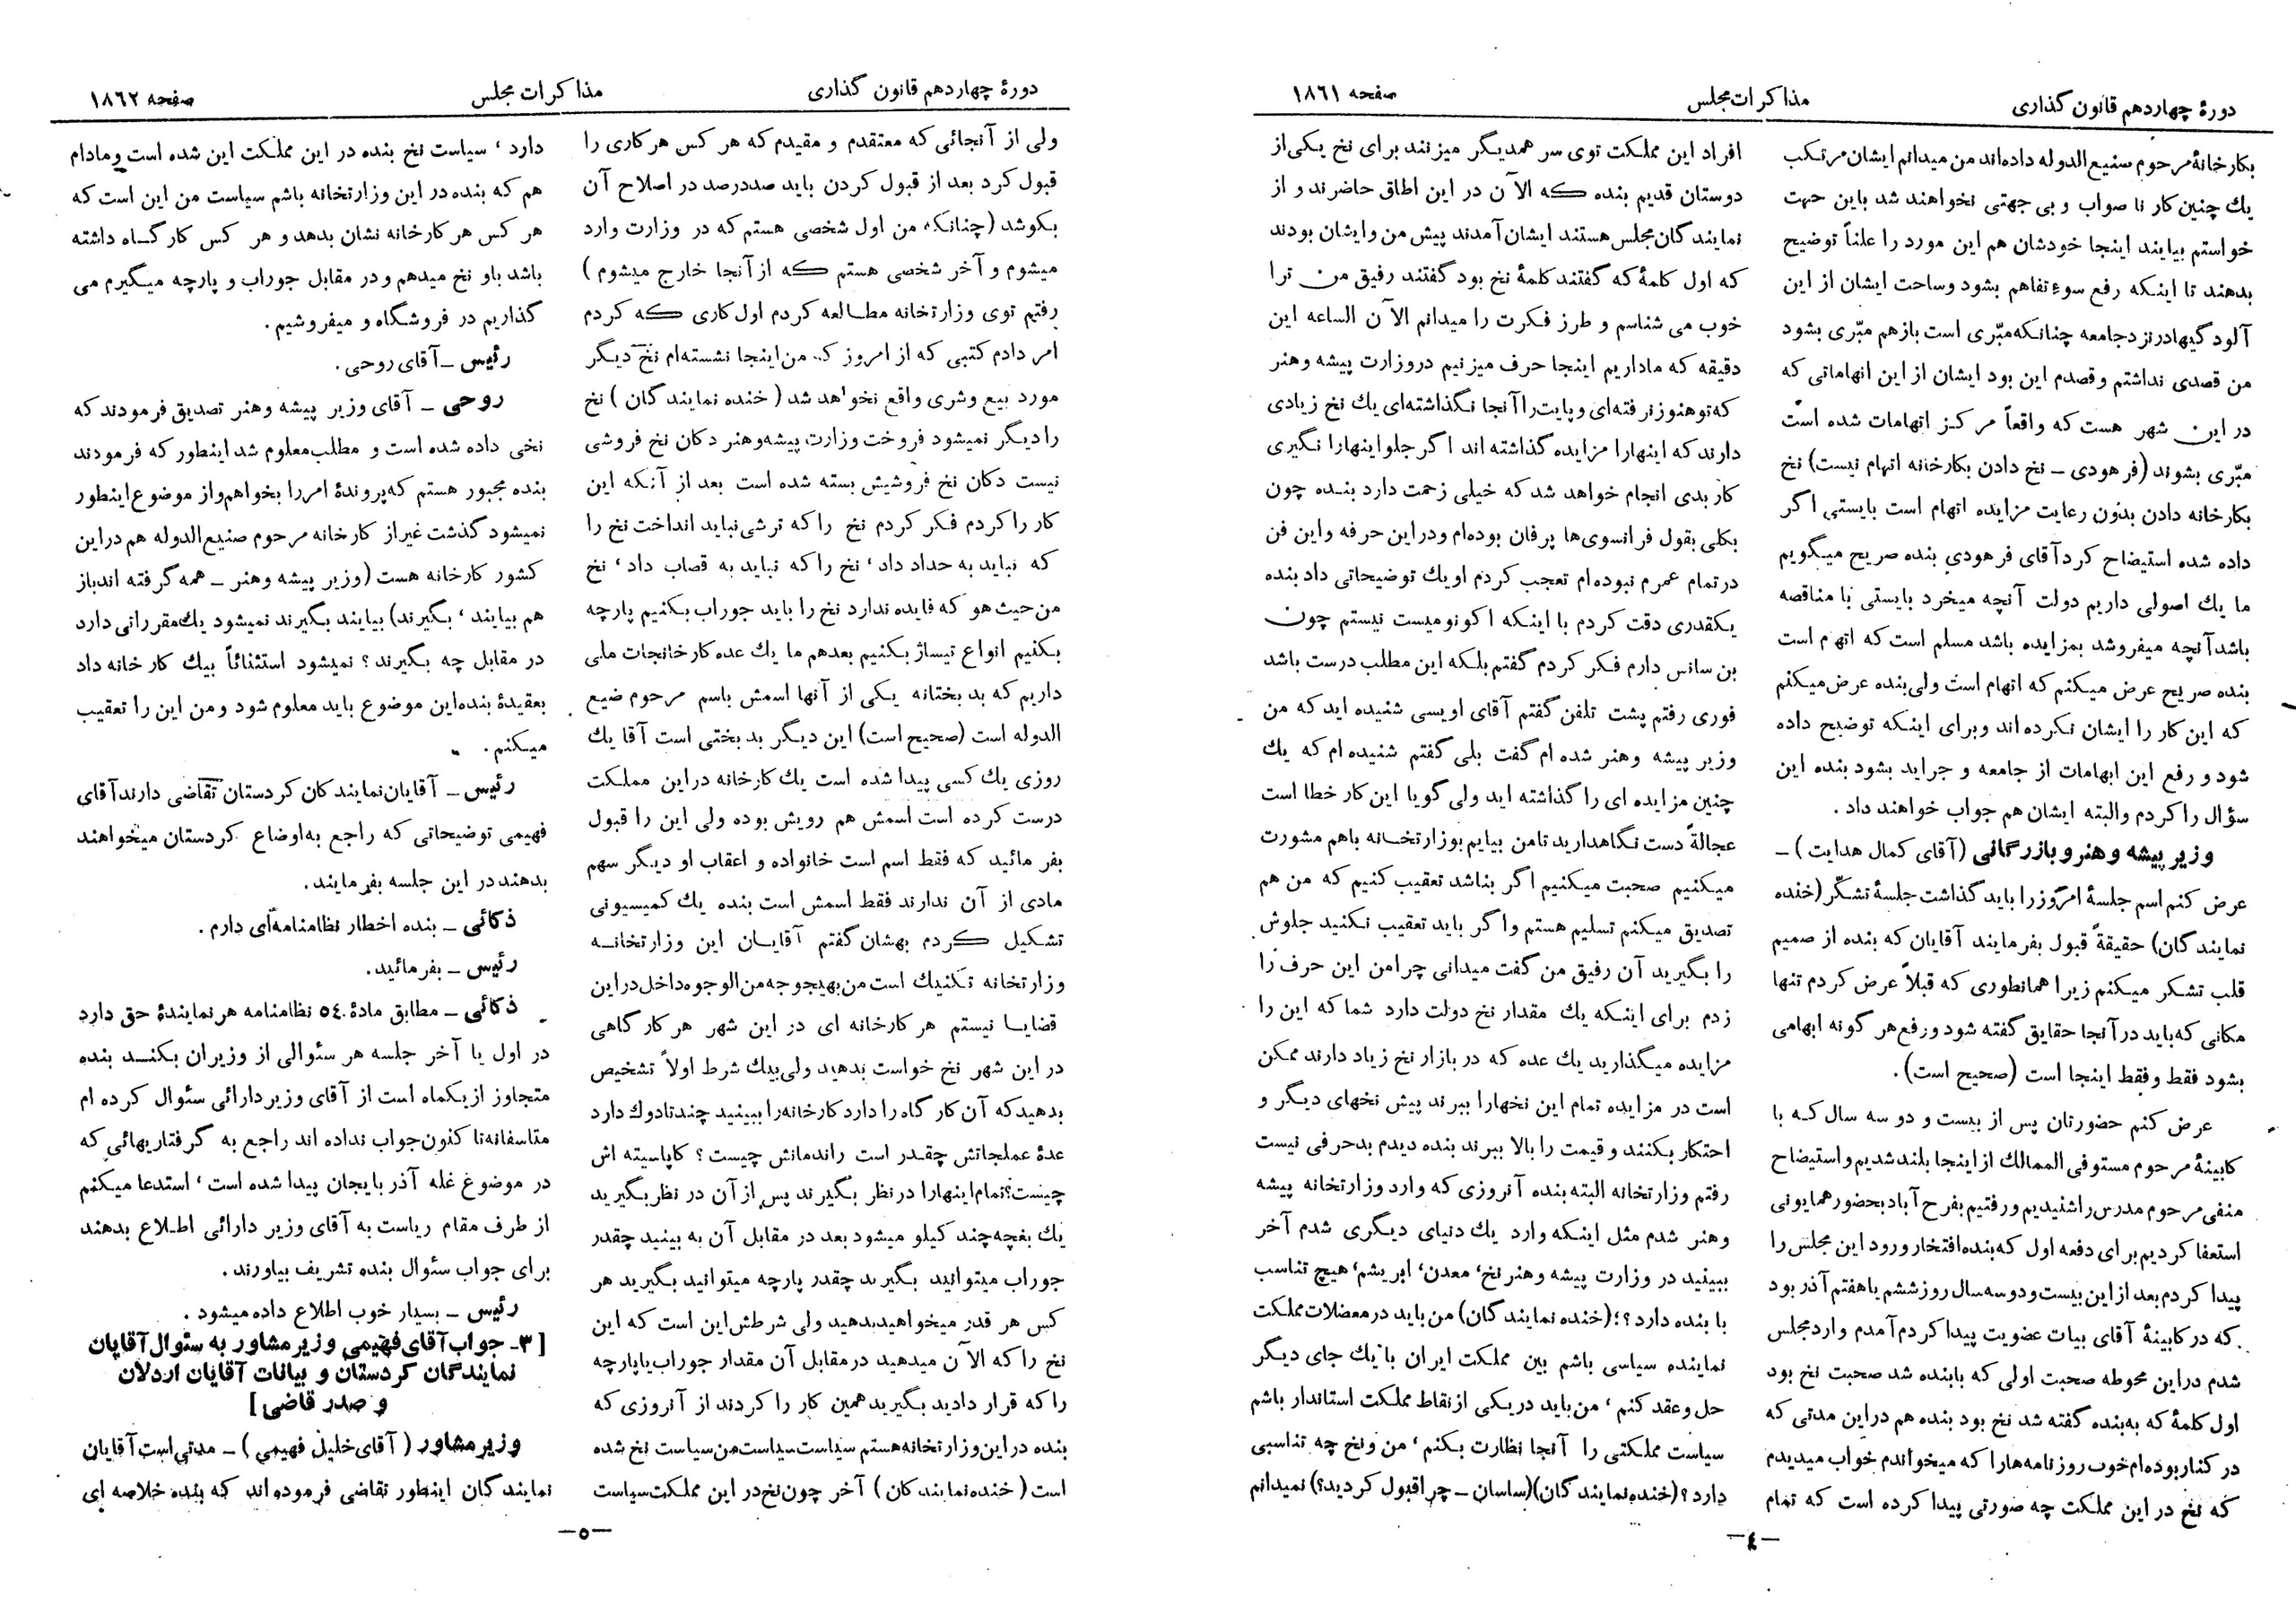 دورهٔ چهاردهم قانون گذاری
مذاکرات مجلس
صفحه ۱۸۶۱
بکارخانهٔ مرحوم سنیع‌الدوله داده‌اند من میدانم ایشان مرتکب
یك چنین کار نا صواب و بی جهتی نخواهند شد باین جهت
خواستم بیایند اینجا خودشان هم این مورد را علناً توضیح
بدهند تا اینکه رفع سوءتفاهم بشود وساحت ایشان از این
آلود گیهادرنزدجامعه چنانکه مبّری است بازهم مبّری بشود
من قصدی نداشتم وقصدم این بود ایشان از این اتهاماتی که
در این شهر هست که واقعاً مرکز اتهامات شده است
مبّری بشوند (فرهودی ـ نخ دادن بکارخانه اتهام نیست) نخ
بکارخانه دادن بدون رعایت مزایده اتهام است بایستی اگر
داده شده استیضاح کرد آقای فرهودی بنده صریح میگویم
ما یك اصولی داریم دولت آنچه میخرد بایستی با مناقصه
باشد آنچه میفروشد بمزایده باشد مسلم است که اتهام است
بنده صریح عرض میکنم که اتهام است ولی بنده عرض میکنم
که این کار را ایشان نکرده اند وبرای اینکه توضیح داده
شود و رفع این ابهامات از جامعه و جراید بشود بنده این
سؤال را کردم والبته ایشان هم جواب خواهند داد .
وزیر پیشه و هنر و بازرگانی (آقای کمال هدایت) ـ
عرض کنم اسم جلسهٔ امروز را باید گذاشت جلسهٔ تشکّر (خنده
نمایندگان) حقیقةً قبول بفرمایند آقایان که بنده از صمیم
قلب تشکر میکنم زیرا همانطوری که قبلاً عرض کردم تنها
مکانی که باید در آنجا حقایق گفته شود ورفع هر گونه ابهامی
بشود فقط وفقط اینجا است (صحیح است) .
عرض کنم حضورتان پس از بیست و دو سه سال که با
کابینهٔ مرحوم مستوفی الممالك از اینجا بلند شدیم و استیضاح
منفی مرحوم مدرس را شنیدیم ورفتیم بفرح آباد بحضور همایونی
استعفا کردیم برای دفعه اول که بنده افتخار ورود این مجلس را
پیدا کردم بعد از این بیست ودو سه سال روز ششم یا هفتم آذر بود
که در کابینهٔ آقای بیات عضویت پیدا کردم آمدم وارد مجلس
شدم در این محوطه صحبت اولی که با بنده شد صحبت نخ بود
اول کلمهٔ که به بنده گفته شد نخ بود بنده هم در این مدتی که
در کنار بوده ام خوب روزنامه‌ها را که میخواندم خواب میدیدم
که نخ در این مملکت چه صورتی پیدا کرده است که تمام
افراد این مملکت توی سر همدیگر میزنند برای نخ یکی از
دوستان قدیم بنده که الآن در این اطاق حاضرند و از
نمایندگان مجلس هستند ایشان آمدند پیش من وایشان بودند
که اول کلمهٔ که گفتند کلمهٔ نخ بود گفتند رفیق من ترا
خوب می شناسم و طرز فکرت را میدانم الآن الساعه این
دقیقه که ماداریم اینجا حرف میزنیم دروزارت پیشه وهنر
که تو هنوز نرفته‌ای و پایت را آنجا نگذاشته‌ای یك نخ زیادی
دارند که اینهارا مزایده گذاشته اند اگر جلو اینهارا نگیری
کار بدی انجام خواهد شد که خیلی زحمت دارد بنده چون
بکلی بقول فرانسوی‌ها پرفان بوده‌ام ودراین حرفه واین فن
در تمام عمرم نبوده ام تعجب کردم او یك توضیحاتی داد بنده
یکقدری دقت کردم با اینکه اکونومیست نیستم چون
بن سانس دارم فکر کردم گفتم بلکه این مطلب درست باشد
فوری رفتم پشت تلفن گفتم آقای اویسی شنیده اید که من
وزیر پیشه وهنر شده ام گفت بلی گفتم شنیده ام که یك
چنین مزایده ای را گذاشته اید ولی گویا این کار خطا است
عجالةً دست نگاهدارید تا من بیایم بوزارتخانه باهم مشورت
میکنیم صحبت میکنیم اگر بناشد تعقیب کنیم که من هم
تصدیق میکنم تسلیم هستم واگر باید تعقیب نکنید جلوش
را بگیرید آن رفیق من گفت میدانی چرا من این حرف را
زدم برای اینکه یك مقدار نخ دولت دارد شما که این را
مزایده میگذارید یك عده که در بازار نخ زیاد دارند ممکن
است در مزایده تمام این نخهارا ببرند پیش نخهای دیگر و
احتکار بکنند و قیمت را بالا ببرند بنده دیدم بد حرفی نیست
رفتم وزارتخانه البته بنده آنروزی که وارد وزارتخانه پیشه
وهنر شدم مثل اینکه وارد یك دنیای دیگری شدم آخر
ببینید در وزارت پیشه وهنر نخ، معدن، ابریشم، هیچ تناسب
با بنده دارد؟؛ (خنده نمایندگان) من باید در معضلات مملکت
نماینده سیاسی باشم بین مملکت ایران با یك جای دیگر
حل وعقد کنم ، من باید دریکی از نقاط مملکت استاندار باشم
سیاست مملکتی را آنجا نظارت بکنم ، من ونخ چه تناسبی
دارد؟ (خنده نمایندگان) (ساسان ـ چرا قبول کردید؟) نمیدانم
ـ٤ـ
دورهٔ چهاردهم قانون گذاری
مذاکرات مجلس
صفحه ۱۸۶۲
ولی از آنجائی که معتقدم و مقیدم که هر کس هر کاری را
قبول کرد بعد از قبول کردن باید صددرصد در اصلاح آن
بکوشد (چنانکه من اول شخصی هستم که در وزارت وارد
میشوم و آخر شخصی هستم که از آنجا خارج میشوم)
رفتیم توی وزارتخانه مطالعه کردم اول کاری که کردم
امر دادم کتبی که از امروز که من اینجا نشسته‌ام نخ دیگر
مورد بیع وشری واقع نخواهد شد (خنده نمایندگان) نخ
را دیگر نمیشود فروخت وزارت پیشه وهنر دکان نخ فروشی
نیست دکان نخ فروشیش بسته شده است بعد از آنکه این
کار را کردم فکر کردم نخ را که ترشی نباید انداخت نخ را
که نباید به حداد داد، نخ را که نباید به قصاب داد، نخ
من حیث هو که فایده ندارد نخ را باید جوراب بکنیم پارچه
بکنیم انواع تیساژ بکنیم بعدهم ما یك عده کارخانجات ملی
داریم که بدبختانه یکی از آنها اسمش باسم مرحوم ضیع
الدوله است (صحیح است) این دیگر بدبختی است آقا یك
روزی یك کسی پیدا شده است یك کارخانه دراین مملکت
درست کرده است اسمش هم رویش بوده ولی این را قبول
بفرمائید که فقط اسم است خانواده و اعقاب او دیگر سهم
مادی از آن ندارند فقط اسمش است بنده یك کمیسیونی
تشکیل کردم بهشان گفتم آقایان این وزارتخانه
وزارتخانه تکنیك است من بهیچوجه من الوجوه داخل دراین
قضایا نیستم هر کارخانه ای در این شهر هر کار گاهی
در این شهر نخ خواست بدهید ولی بیك شرط اولاً تشخیص
بدهید که آن کار گاه را دارد کارخانه را ببینید چندتا دوك دارد
عدهٔ عملجاتش چقدر است راندمانش چیست؟ کاپاسیته اش
چیست؟ تمام اینهارا در نظر بگیرند پس از آن در نظر بگیرید
یك بغچه چند کیلو میشود بعد در مقابل آن به بینید چقدر
جوراب میتوانید بگیرید چقدر پارچه میتوانید بگیرید هر
کس هر قدر میخواهید بدهید ولی شرطش این است که این
نخ را که الآن میدهید درمقابل آن مقدار جوراب یا پارچه
را که قرار دادید بگیرید همین کار را کردند از آنروزی که
بنده دراین وزارتخانه هستم سیاست سیاست من سیاست نخ شده
است (خنده نمایندگان) آخر چون نخ در این مملکت سیاست
دارد ، سیاست نخ بنده در این مملکت این شده است ومادام
هم که بنده در این وزارتخانه باشم سیاست من این است که
هر کس هر کارخانه نشان بدهد و هر کس کارگاه داشته
باشد باو نخ میدهم و در مقابل جوراب و پارچه میگیرم می
گذاریم در فروشگاه و میفروشیم .
رئیس ـ آقای روحی .
روحی ـ آقای وزیر پیشه وهنر تصدیق فرمودند که
نخی داده شده است و مطلب معلوم شد اینطور که فرمودند
بنده مجبور هستم که پروندهٔ امر را بخواهم واز موضوع اینطور
نمیشود گذشت غیر از کارخانه مرحوم صنیع‌الدوله هم دراین
کشور کارخانه هست (وزیر پیشه وهنر ـ همه گرفته اند باز
هم بیایند ، بگیرند) بیایند بگیرند نمیشود یك مقرراتی دارد
در مقابل چه بگیرند؟ نمیشود استثنائاً بیك کارخانه داد
بعقیدهٔ بنده این موضوع باید معلوم شود ومن این را تعقیب
میکنم .
رئیس ـ آقایان نمایندکان کردستان تقاضی دارند آقای
فهیمی توضیحاتی که راجع به اوضاع کردستان میخواهند
بدهند در این جلسه بفرمایند .
ذکائی ـ بنده اخطار نظامنامه‌ای دارم .
رئیس ـ بفرمائید .
ذکائی ـ مطابق مادهٔ ٥٤ نظامنامه هر نمایندهٔ حق دارد
در اول یا آخر جلسه هر سئوالی از وزیران بکند بنده
متجاوز از یکماه است از آقای وزیر دارائی سئوال کرده ام
متاسفانه تا کنون جواب نداده اند راجع به گرفتاریهائی که
در موضوع غله آذربایجان پیدا شده است ، استدعا میکنم
از طرف مقام ریاست به آقای وزیر دارائی اطلاع بدهند
برای جواب سئوال بنده تشریف بیاورند .
رئیس ـ بسیار خوب اطلاع داده میشود .
[۳ـ جواب آقای فهیمی وزیر مشاور به سئوال آقایان
نمایندگان کردستان و بیانات آقایان اردلان
و صدر قاضی]
وزیر مشاور (آقای خلیل فهیمی) ـ مدتی است آقایان
نمایندگان اینطور تقاضی فرموده اند که بنده خلاصه ای
ـ٥ـ